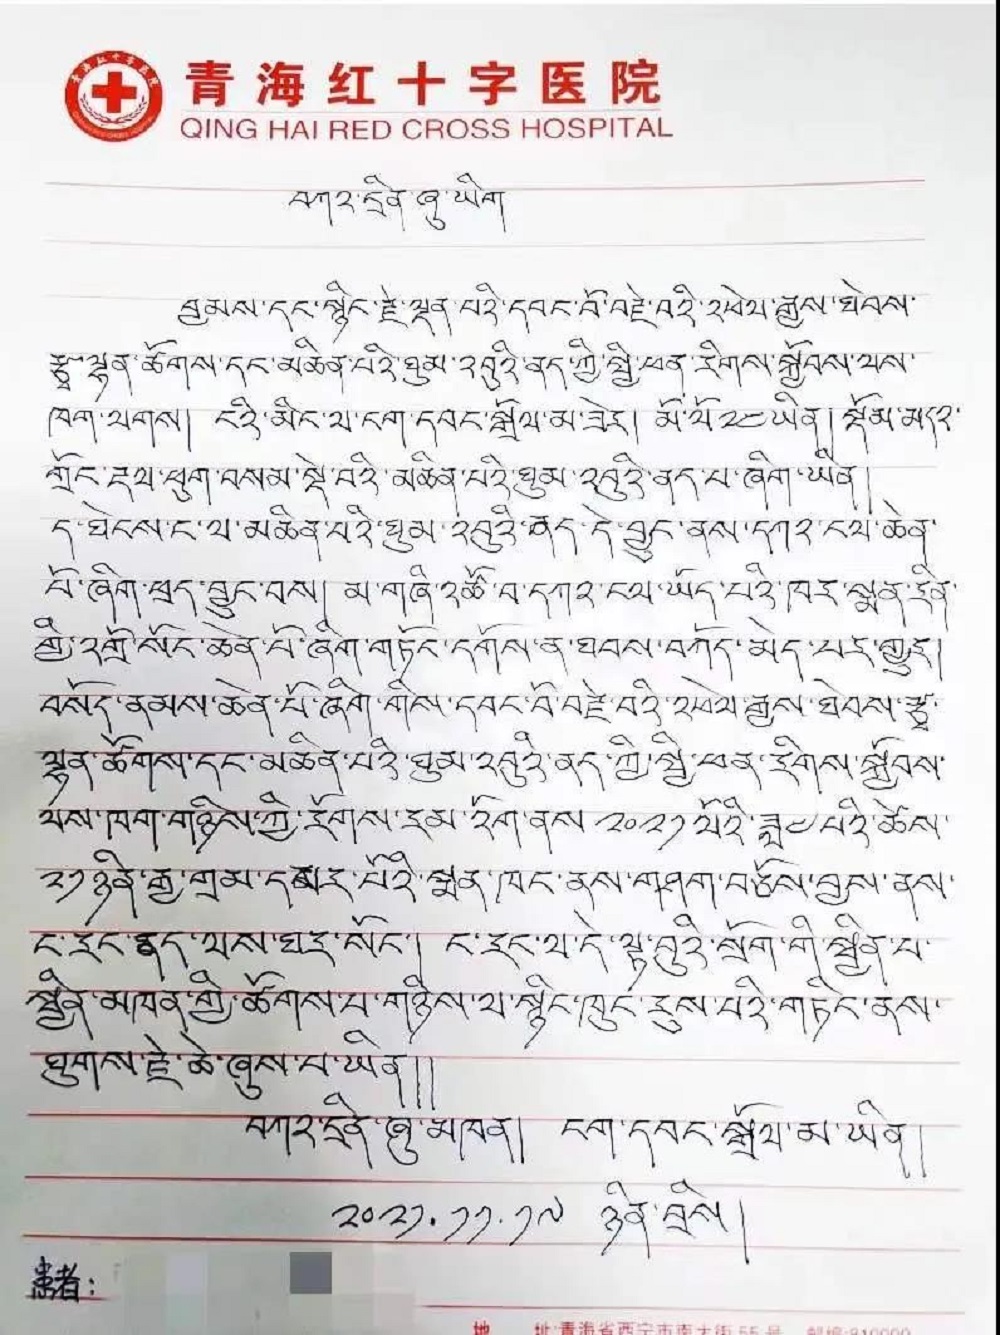 青海红十字医院
QING HAI RED CROSS HOSPITAL
བཀའ་དྲིན་ཞུ་ཡིག
བྱམས་དང་སྙིང་རྗེ་ལྡན་པའི་དབང་པོ་བརྗེ་བའི་འཕེལ་རྒྱས་ཐེབས་
རྩྭ་ལྡན་ཚོགས་དང་མཆིན་པའི་ཐུམ་འབུའི་ནད་ཀྱི་སྤྱི་ཕན་རིགས་སྐྱོབས་ལས་
ཁག་ལགས། ངའི་མིང་ལ་ངག་དབང་སྒྲོལ་མ་ཟེར། མོ་ལོ་༢༠ཡིན། སྡོམ་མདའ་
གྲོང་རྡལ་ཕུག་བསམ་སྡེ་བའི་མཆིན་པའི་ཐུམ་འབུའི་ནད་པ་ཞིག་ཡིན།
ད་ཐེངས་ང་ལ་མཆིན་པའི་ཐུམ་འབུའི་ནད་དེ་བྱུང་ནས་དཀའ་ངལ་ཆེན་
པོ་ཞིག་ཕྲད་བྱུང་བས། མ་གཞི་འཚོ་བ་དཀའ་ངལ་ཡོད་པའི་ཁར་སྨན་རིན་
གྱི་འགྲོ་སོང་ཆེན་པོ་ཞིག་གཏོང་དགོས་ན་ཐབས་བཀོད་མེད་པར་གྱུར།
བསོད་ནམས་ཆེན་པོ་ཞིག་གིས་དབང་པོ་བརྗེ་བའི་འཕེལ་རྒྱས་ཐེབས་རྩྭ་
ལྡན་ཚོགས་དང་མཆིན་པའི་ཐུམ་འབུའི་ནད་ཀྱི་སྤྱི་ཕན་རིགས་སྐྱོབས་
ལས་ཁག་གཉིས་ཀྱི་རོགས་རམ་འོག་ནས་༢༠༢༡ལོའི་ཟླ་པའི་ཚེས་
༢༡ཉིན་རྒྱ་གྲམ་དམར་པོའི་སྨན་ཁང་ནས་གཤག་བཅོས་བྱས་ནས་
ང་རང་ནད་ལས་ཐར་སོང་། ང་རང་ལ་དེ་ལྟ་བུའི་སྲོག་གི་སྦྱིན་པ་
སྦྱིན་མཁན་གྱི་ཚོགས་པ་གཉིས་ལ་སྙིང་ཁུང་རུས་པའི་གཏིང་ནས་
ཐུགས་རྗེ་ཆེ་ཞུས་པ་ཡིན།།།
བཀའ་དྲིན་ཞུ་མཁན། ངག་དབང་སྒྲོལ་མ་ཡིན།
༢༠༢༡.༡༡.༡༧ ཉིན་བྲིས།
患者：
地 址:青海省西宁市南大街55号 邮编:810000